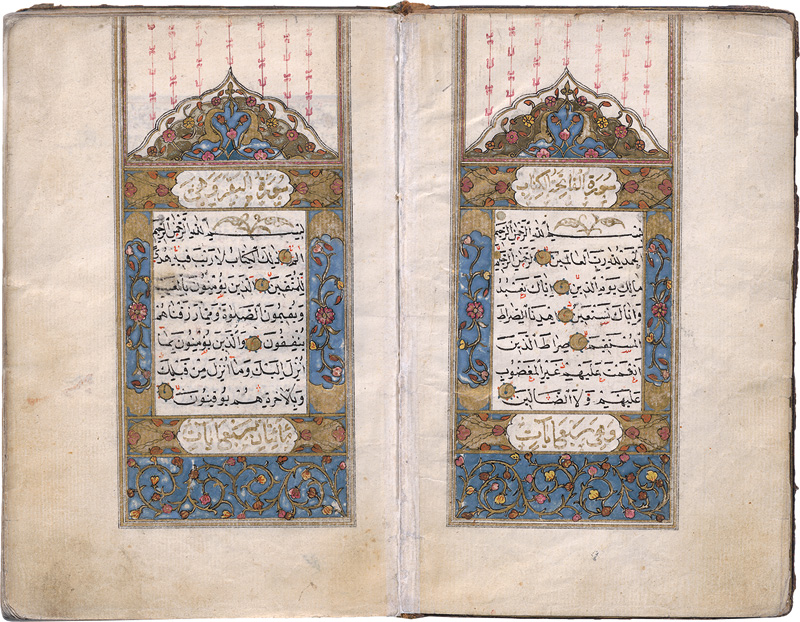 سورة الفاتحة الكتاب
بسم الله الرحمن الرحيم
الحمد لله رب العالمين الرحمن الرحيم
مالك يوم الدين اياك نعبد
واياك نستعين اهدنا الصراط
المستقيم صراط الذين
انعمت عليهم غير المغضوب
عليهم ولا الضالين
وهي سبع ايات
سورة البقرة وهي
بسم الله الرحمن الرحيم
الم ذلك الكتاب لا ريب فيه هدى
للمتقين الذين يؤمنون بالغيب
ويقيمون الصلوة ومما رزقناهم
ينفقون والذين يؤمنون بما
انزل اليك وما انزل من قبلك
وبالاخرة هم يوقنون
مائتان ايات